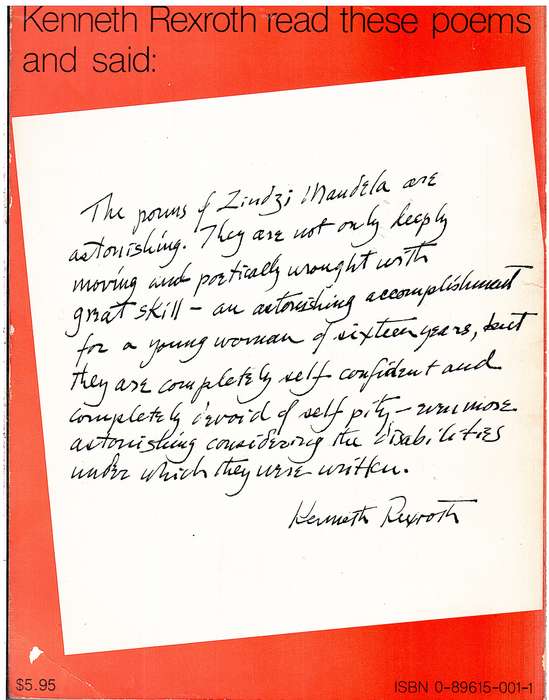 Kenneth Rexroth read these poems
and said:
The poems of Zindzi Mandela are
astonishing. They are not only deeply
moving and poetically wrought with
great skill – an astonishing accomplishment
for a young woman of sixteen years, but
they are completely self confident and
completely devoid of self pity – even more
astonishing considering the disabilities
under which they were written.
Kenneth Rexroth
$5.95
ISBN 0-89615-001-1